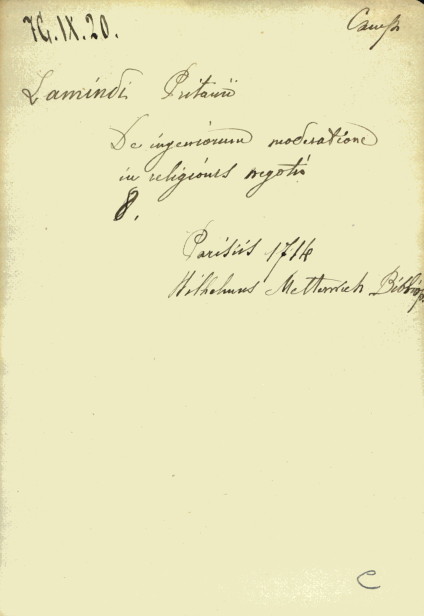 7G.IX.20.
Camp
Lamindi Pritanii
De ingeniorum moderatione
in religionis negotio
8.
Parisiis 1714
Wilhelmus Metternich Bibliop
C